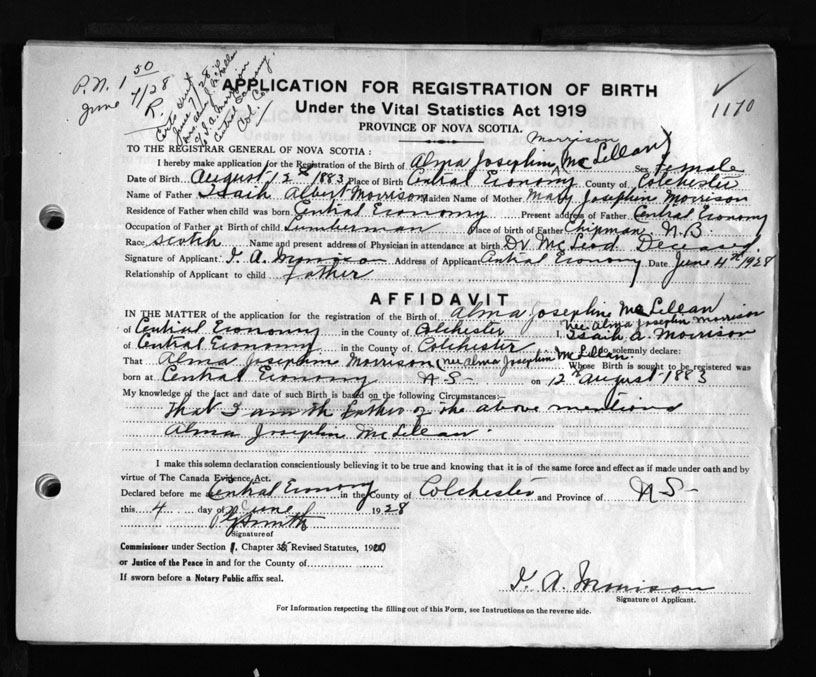 P.N. 1 50
June 7/28
R.
APPLICATION FOR REGISTRATION OF BIRTH
1170
Under the Vital Statistics Act 1919
PROVINCE OF NOVA SCOTIA.
Morrison
TO THE REGISTRAR GENERAL OF NOVA SCOTIA:
I hereby make application for the Registration of the Birth of Alma Josephin (McLellan) Sex Female
Date of Birth August 12th 1883 Place of Birth Central Economy County of Colchester
Name of Father Isaih Albert Morrison Maiden Name of Mother Mary Josephen Morrison
Residence of Father when child was born Central Economy Present address of Father Central Economy
Occupation of Father at Birth of child Lumberman Place of birth of Father Chipman N.B.
Race scotch Name and present address of Physician in attendance at birth Dr McLeod Deceased
Signature of Applicant I. A. Morrison Address of Applicant Central Economy Date June 4th 1928
Relationship of Applicant to child Father
AFFIDAVIT
IN THE MATTER of the application for the registration of the Birth of Alma Josephine McLellan
nee Alma Josephin Morrison
of Central Economy in the County of Colchester I, Isaih A. Morrison
of Central Economy in the County of Colchester do solemnly declare:
That Alma Josephin Morrison (nee Alma Josephin McLellan. Whose Birth is sought to be registered was
born at Central Economy N S - on 12th August 1883
My knowledge of the fact and date of such Birth is based on the following Circumstances:-
That I am the Father of the above mentiond
Alma Josephin McLellan.
I make this solemn declaration conscientiously believing it to be true and knowing that it is of the same force and effect as if made under oath and by
virtue of The Canada Evidence Act.
Declared before me at Central Economy in the County of Colchester and Province of N S -
this 4 day of June 1928
Signature of
Commissioner under Section 1, Chapter 35 Revised Statutes, 1900
or Justice of the Peace in and for the County of
If sworn before a Notary Public affix seal.
I. A. Morrison
Signature of Applicant.
For Information respecting the filling out of this Form, see Instructions on the reverse side.